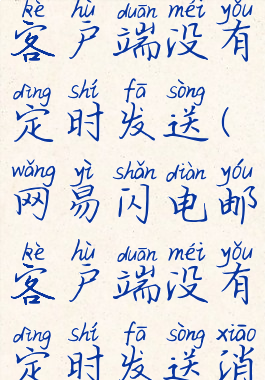 kè hù duān méi yǒu
客户端没有
dìng shí fā sòng
定时发送(
wǎng yì shǎn diàn yóu
网易闪电邮
kè hù duān méi yǒu
客户端没有
dìng shí fā sòng xiāo
定时发送消